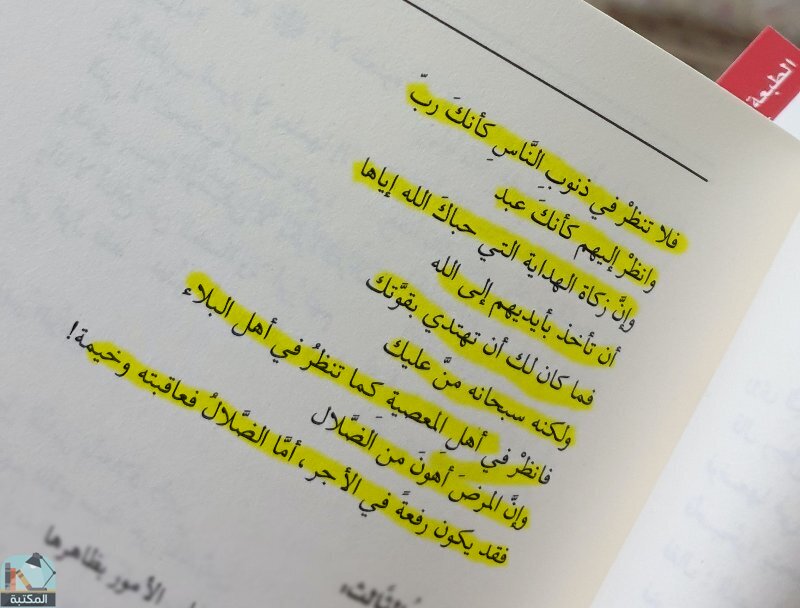 الطبعة
فلا تنظرْ في ذنوبِ النَّاسِ كأنكَ ربّ
وانظرْ إليهم كأنكَ عبد
وإنَّ زكاة الهداية التي حباكَ الله إياها
أن تأخذ بأيديهم إلى الله
فما كان لك أن تهتدي بقوَّتك
ولكنه سبحانه منَّ عليك
فانظرْ في أهل المعصية كما تنظرُ في أهل البلاء
وإنَّ المرضَ أهونَ من الضَّلال
فقد يكون رفعةً في الأجر، أمَّا الضَّلالُ فعاقبته وخيمة!
الثالث:
الأمور بظاهرها
المكتبة